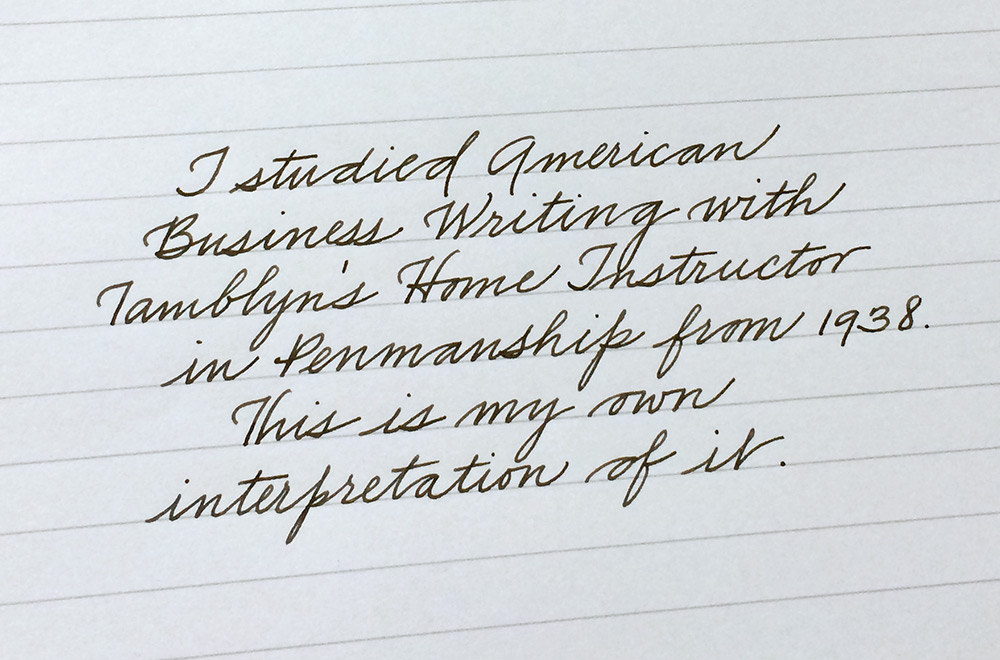 I studied American
Business Writing with
Tamblyn's Home Instructor
in Penmanship from 1938.
This is my own
interpretation of it.